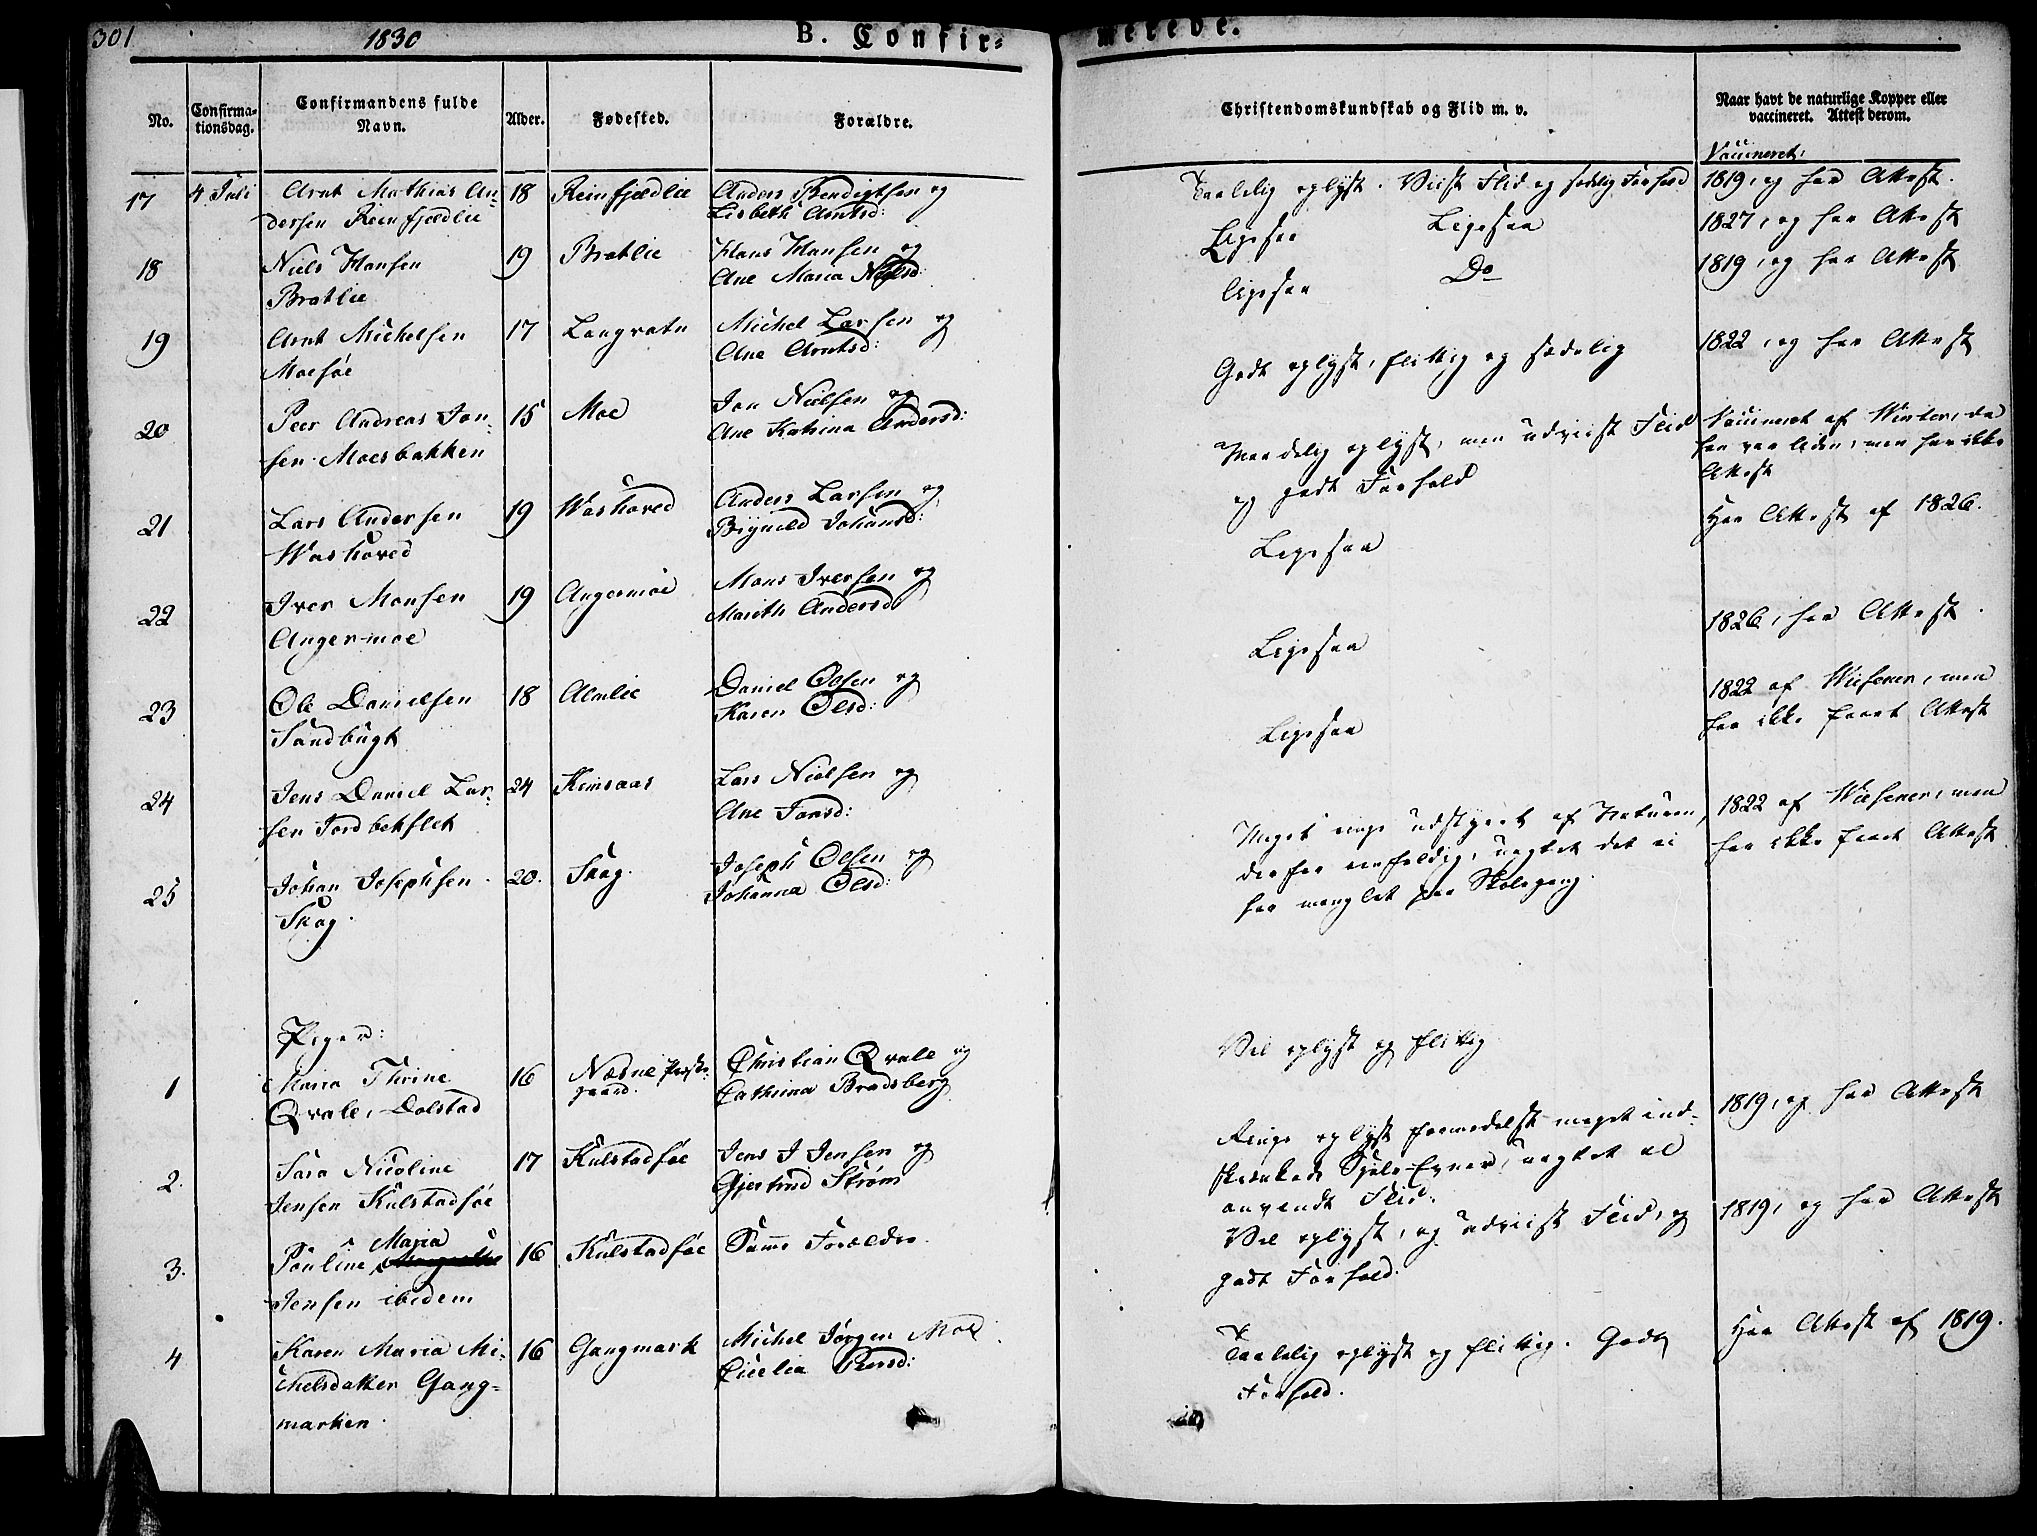 301
1830
B. Confir-
merede.
No.
Confirma-
tionsdag.
Confirmandens fulde
Navn.
Alder.
Fødested.
Forældre.
Christendomskundskab og Flid m. v.
Naar havt de naturlige Kopper eller
vaccineret. Attest derom.
Vaccineret:
17 4 Juli Arnt Mathias An- 18 Reinfjeldlie Anders Bendigtsen og
dersen Reinfjeldlie Lisbeth Arntsd:
Taalelig oplyst. Viist Flid og sædelig Forhold 1819, og har Attest.
18 Niels Hansen 19 Bratlie Hans Hansen og
Bratlie Ane Maria Nielsd:
Ligesaa Ligesaa 1827, og har Attest
19 Arnt Michelsen 17 Langvatn Michel Larsen og
Moesøe Ane Arntsd:
ligesaa Do 1819, og har Attest
20 Peer Andreas Jon- 15 Moe Jon Nielsen og
sen Moesbakken Ane Katrina Andersd:
Godt oplyst, flittig og sædelig 1822, og har Attest
21 Lars Andersen 19 Washoved Anders Larsen og
Washoved Johansd:
Maadelig oplyst, men udviist Flid
og godt Forhold
Vaccineret af Winter, da
han var liden, men har ikke
Attest
22 Iver Monsen 19 Angermoe Mons Iversen og
Angermoe Marith Andersd
Ligesaa Har Attest af 1826.
23 Ole Danielsen 18 Almlie Daniel Olsen og
Sandbugt Karen Olsd:
Ligesaa 1826, har Attest.
24 Jens Daniel Lar- 24 Kemsaas Lars Nielsen og
sen Jordbekslet Ane Jonsd:
Ligesaa 1822 af Wiesener, men
har ikke faaet Attest
25 Johan Josephsen 20. Skog. Joseph Olsen og
Skog. Johanna Olsd:
Meget ringe udstyret af Naturen,
derfor eenfoldig, uagtet det ei
har manglet paa Skolegang.
1822 af Wiesener, men
har ikke faaet Attest
Piger:
1 Maria Thrine 16 Næsne Præste- Christian Qvale og
Qvale, Dolstad gaard. Cathrina Bradsberg
Vel oplyst og flittig
1819, og har Attest
2. Sara Nicoline 17 Kulstadsøe Jens J Jensen og
Jensen Kulstadsøe Gjertrud Strøm
Ringe oplyst formedelst meget ind-
skrænkede Sjels-Evner, uagtet al
anvendt Flid.
1819, og har Attest
3. Pauline Maria 16 Kulstadsøe Samme Forældre.
Jensen ibidem
Vel oplyst, og udviist Flid, og
godt Forhold.
4 Karen Maria Mi- 16 Gangmark Michel Jørgen Moe
chelsdatter Gang- Cicelia Peersd:
marken.
Taalelig oplyst og flittig. Godt
Forhold.
Har Attest af 1819.